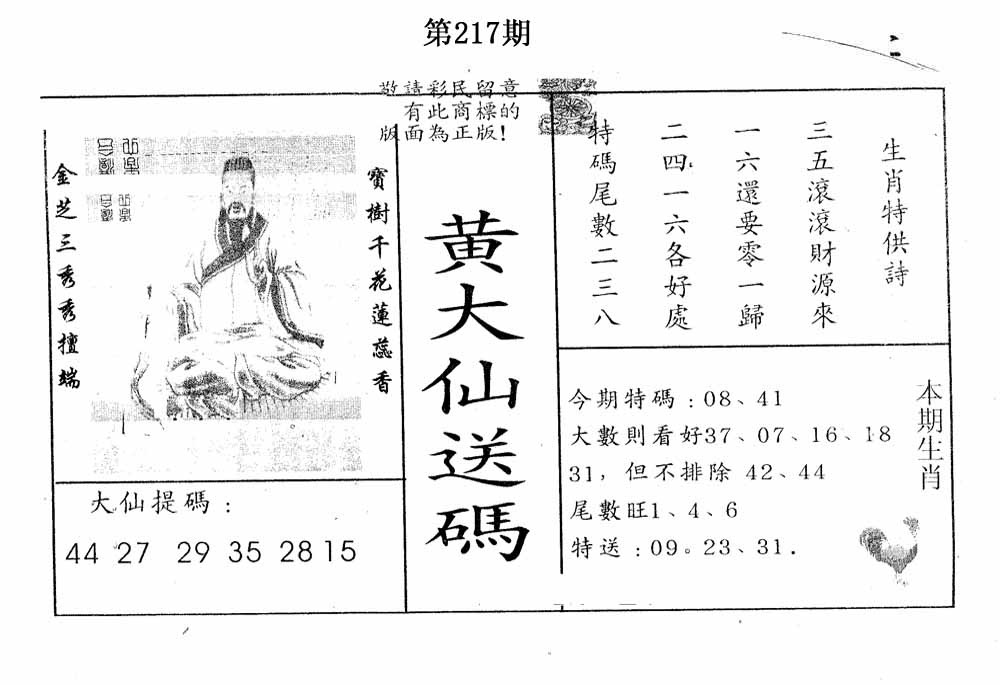 第217期
敬請彩民留意
有此商標的
版面為正版!
寶樹千花蓮蕊香
金芝三秀秀擅端
大仙提碼:
44 27 29 35 28 15
黃大仙送碼
生肖特供詩
三五滾滾財源來
一六還要零一歸
二四一六各好處
特碼尾數二三八
本期生肖
今期特碼:08、41
大數則看好37、07、16、18
31,但不排除 42、44
尾數旺1、4、6
特送:09。23、31.